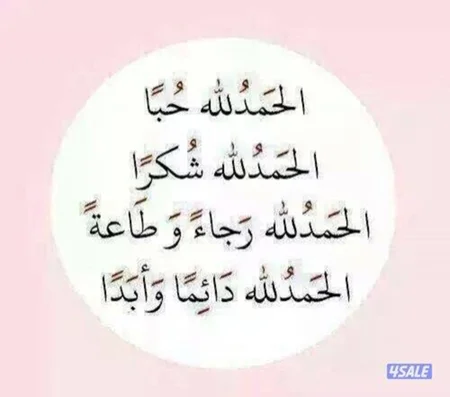 الحَمدُلله حُبًا
الحَمدُلله شُكرًا
الحَمدُلله رَجاءً وَ طَاعةً
الحَمدُلله دَائِمًا وَأبَدًا
4SALE